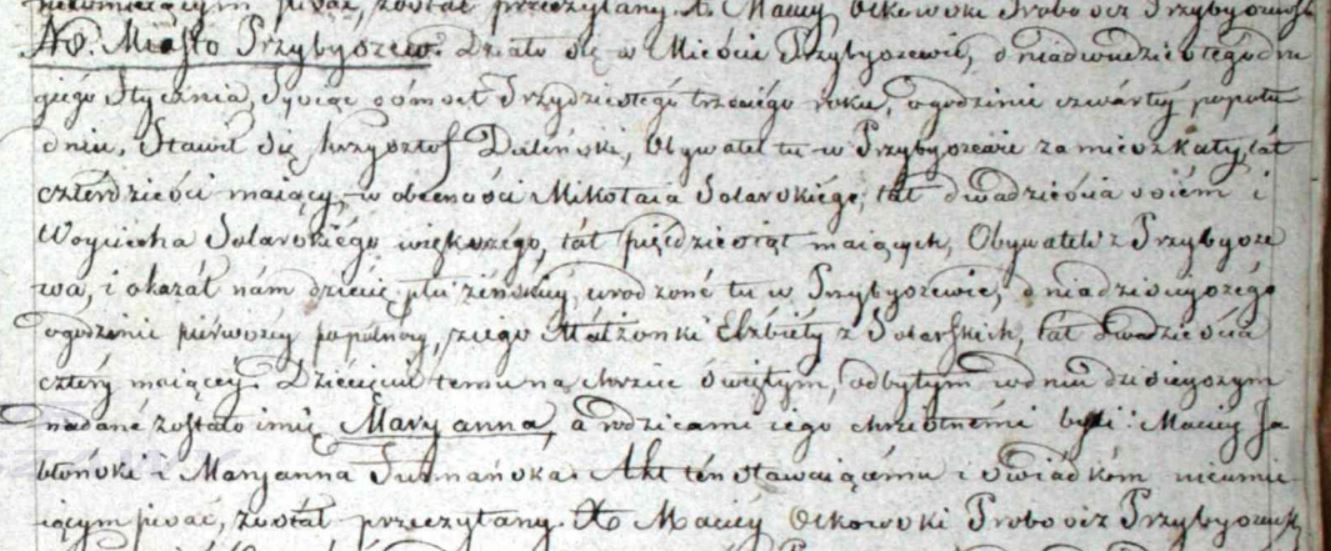 piśać, został przeczytany. X Maciey Ockowski Proboścz Przybyszewski
No. 8. Miasto Przybyszew. Działo się w Mieście Przybyszewie, dnia dwudziestego dru
giego Stycznia, Tysiąc ośmset Trzydziestego trzeciego roku, o godzinie czwartéy popołu
dniu, Stawił się Krzysztof Daliński, Obywatel tu w Przybyszewie zamieszkały, lat
czterdzieści maiący, w obecności Mikołaia Solarskiégo, lat dwadzieścia ośiem i
Woyciecha Solarskiégo większégo, lat pięćdziesiąt maiących, Obywateli z Przybysze
wa, i okazał nam dziecię płci żeńskiéy, urodzoné tu w Przybyszewie, dnia dzisieyszégo
o godzinie piérwszéy popołnocy, z iego Małżonki Elżbiéty z Solarskich, lat dwadzieścia
cztéry maiącéy. Dziecięciu temu na chrzcie świętym, odbytym w dniu dzisieyszym
nadané zostało imię Maryanna, a rodzicami iego chrzestnémi byli: Maciéy Ja
błoński i Maryanna Surmańska. Akt tén stawaiącému i świadkóm nieumie
iącym pisać, został przeczytany. X Maciéy Ockowski Proboścz Przybyszewsk